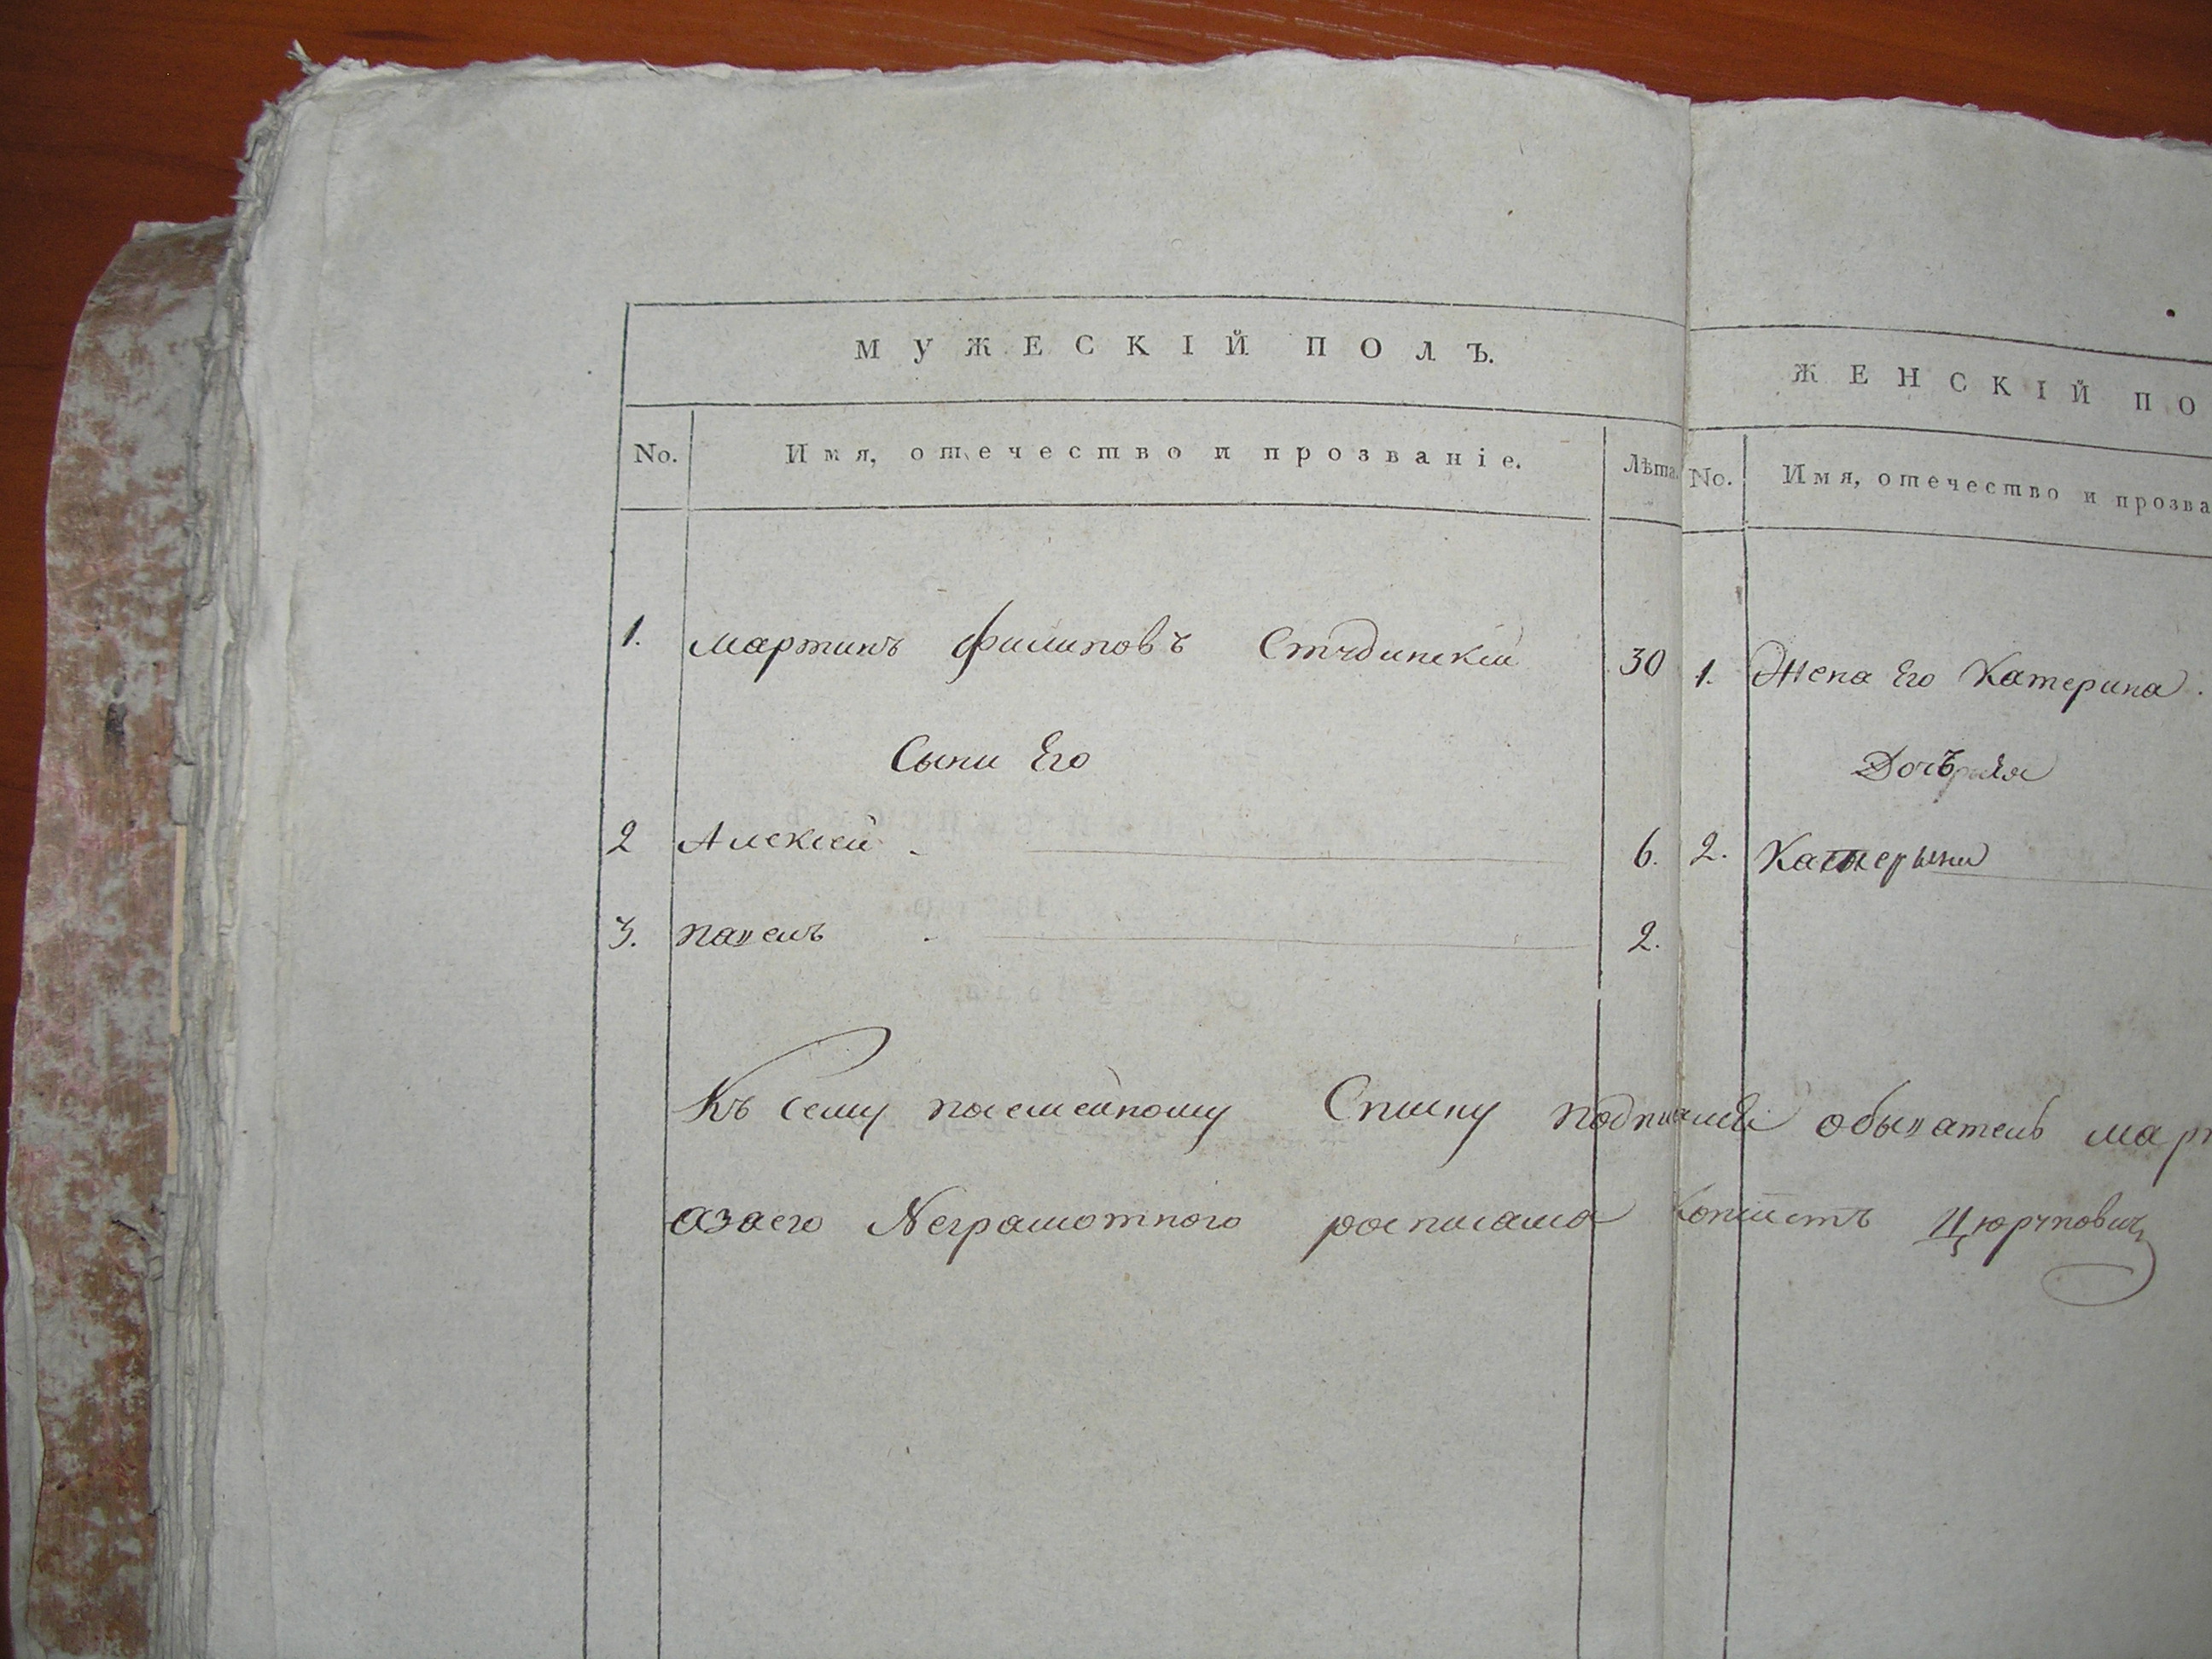 МУЖЕСКІЙ ПОЛЪ.
No. Имя, отечество и прозваніе. Лѣта.
1. Мартинъ Филиповъ Студинскій 30
Сыни Его
2 Алексей 6.
3. Павелъ 2.
ЖЕНСКІЙ ПО
No. Имя, отечество и прозва
1. Жена Его Катерина.
2. Катерина
Къ сему посемейному Списку подписался обыватель мар
азаего Неграмотного росписался Копіистъ